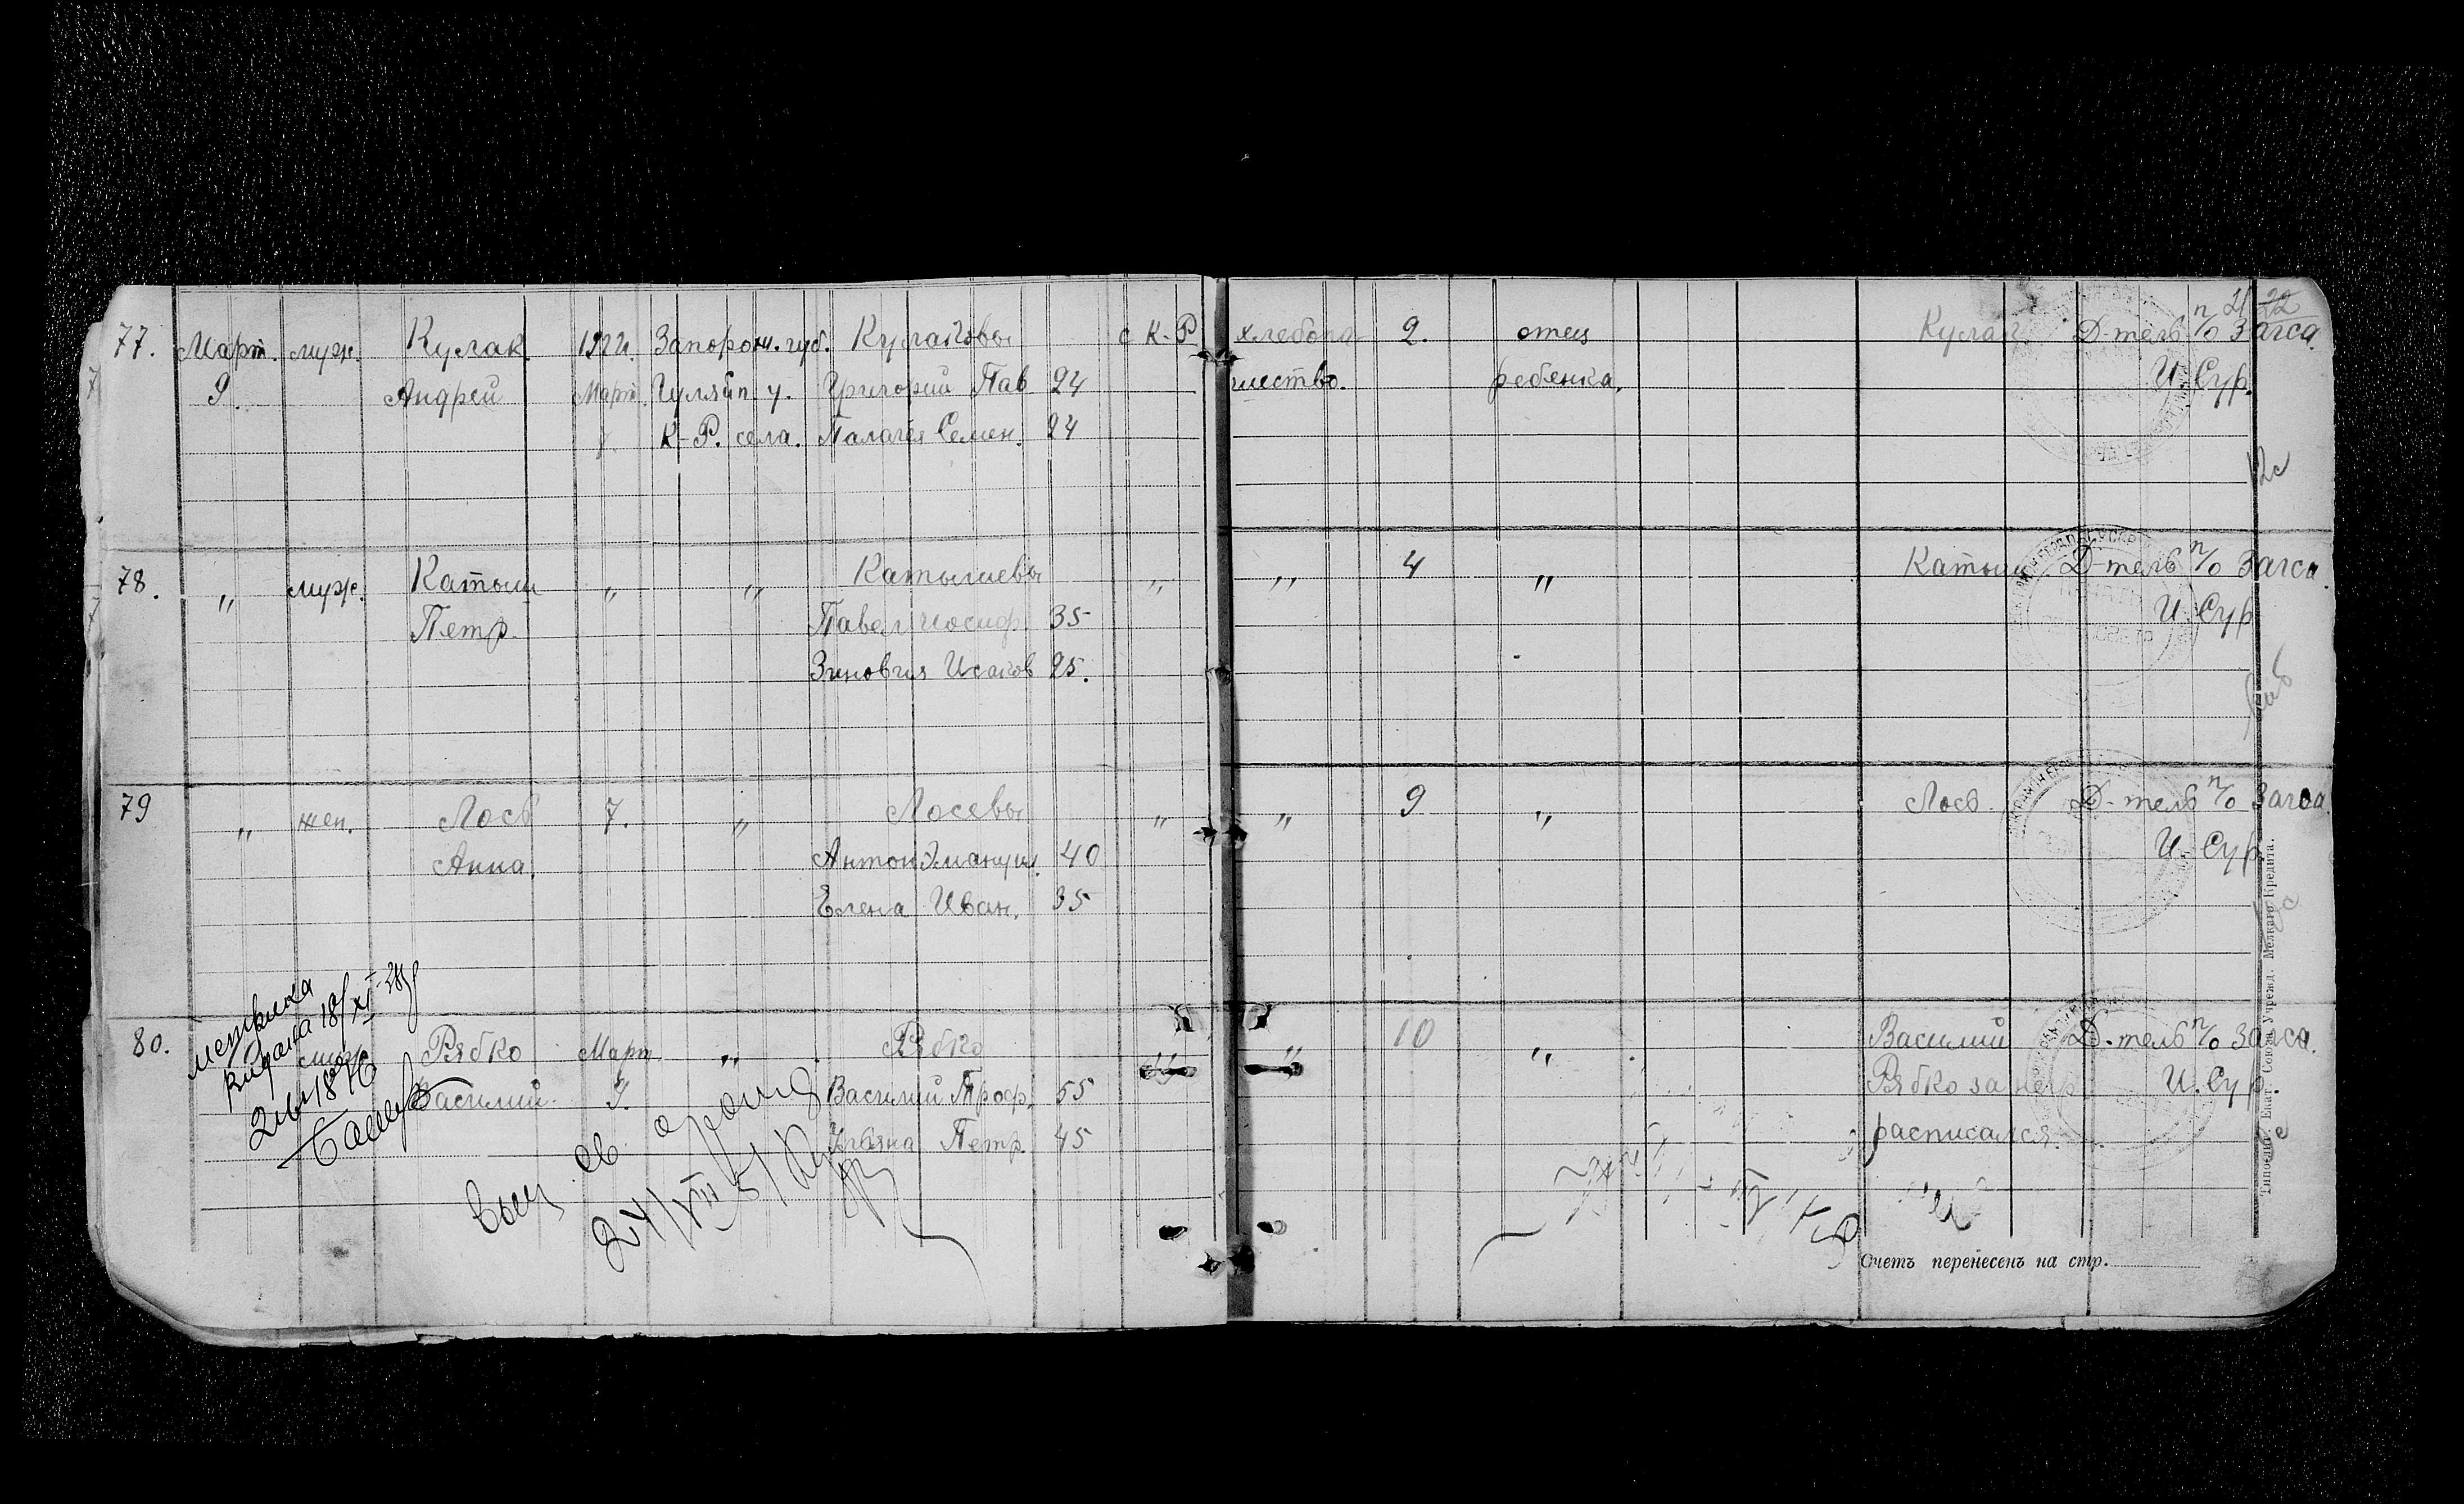 77. Март. муж. Кулак 192 г. Запорож. губ. Кулаковы с К-Р хлебопа 2. отец Кулак Д-тель п/о Загса.
9. Андрей Март. Гуляйп у. Григорий Пав 24 шество. ребенка. И. Сур.
К-Р. села. Палагея Семен. 24
78. " муж. Катыш " " Катышевы " " 4 " Катыш Д-тель п/о Загса.
Петр. Павел Иосиф 35 И. Сур
Зиновия Исаков 25.
79 " жен. Лось 7. " Лосевы " " 9 " Лось. Д-тель п/о Загса
Анна. Антон Эмануил. 40 И. Сур
Елена Иван. 35
метрика
видана 18/XI-28
80. муж Рябко Март " Рябко " " 10 " Василий Д-тель п/о Загса.
Василий. 7. Василий Троф. 55 Рябко за негр И. Сур.
Петр. 45 расписался.
24/VIII 51
Счетъ перенесенъ на стр.
Типогр. Екат. Союза Учрежд. Мелкаго Кредита.